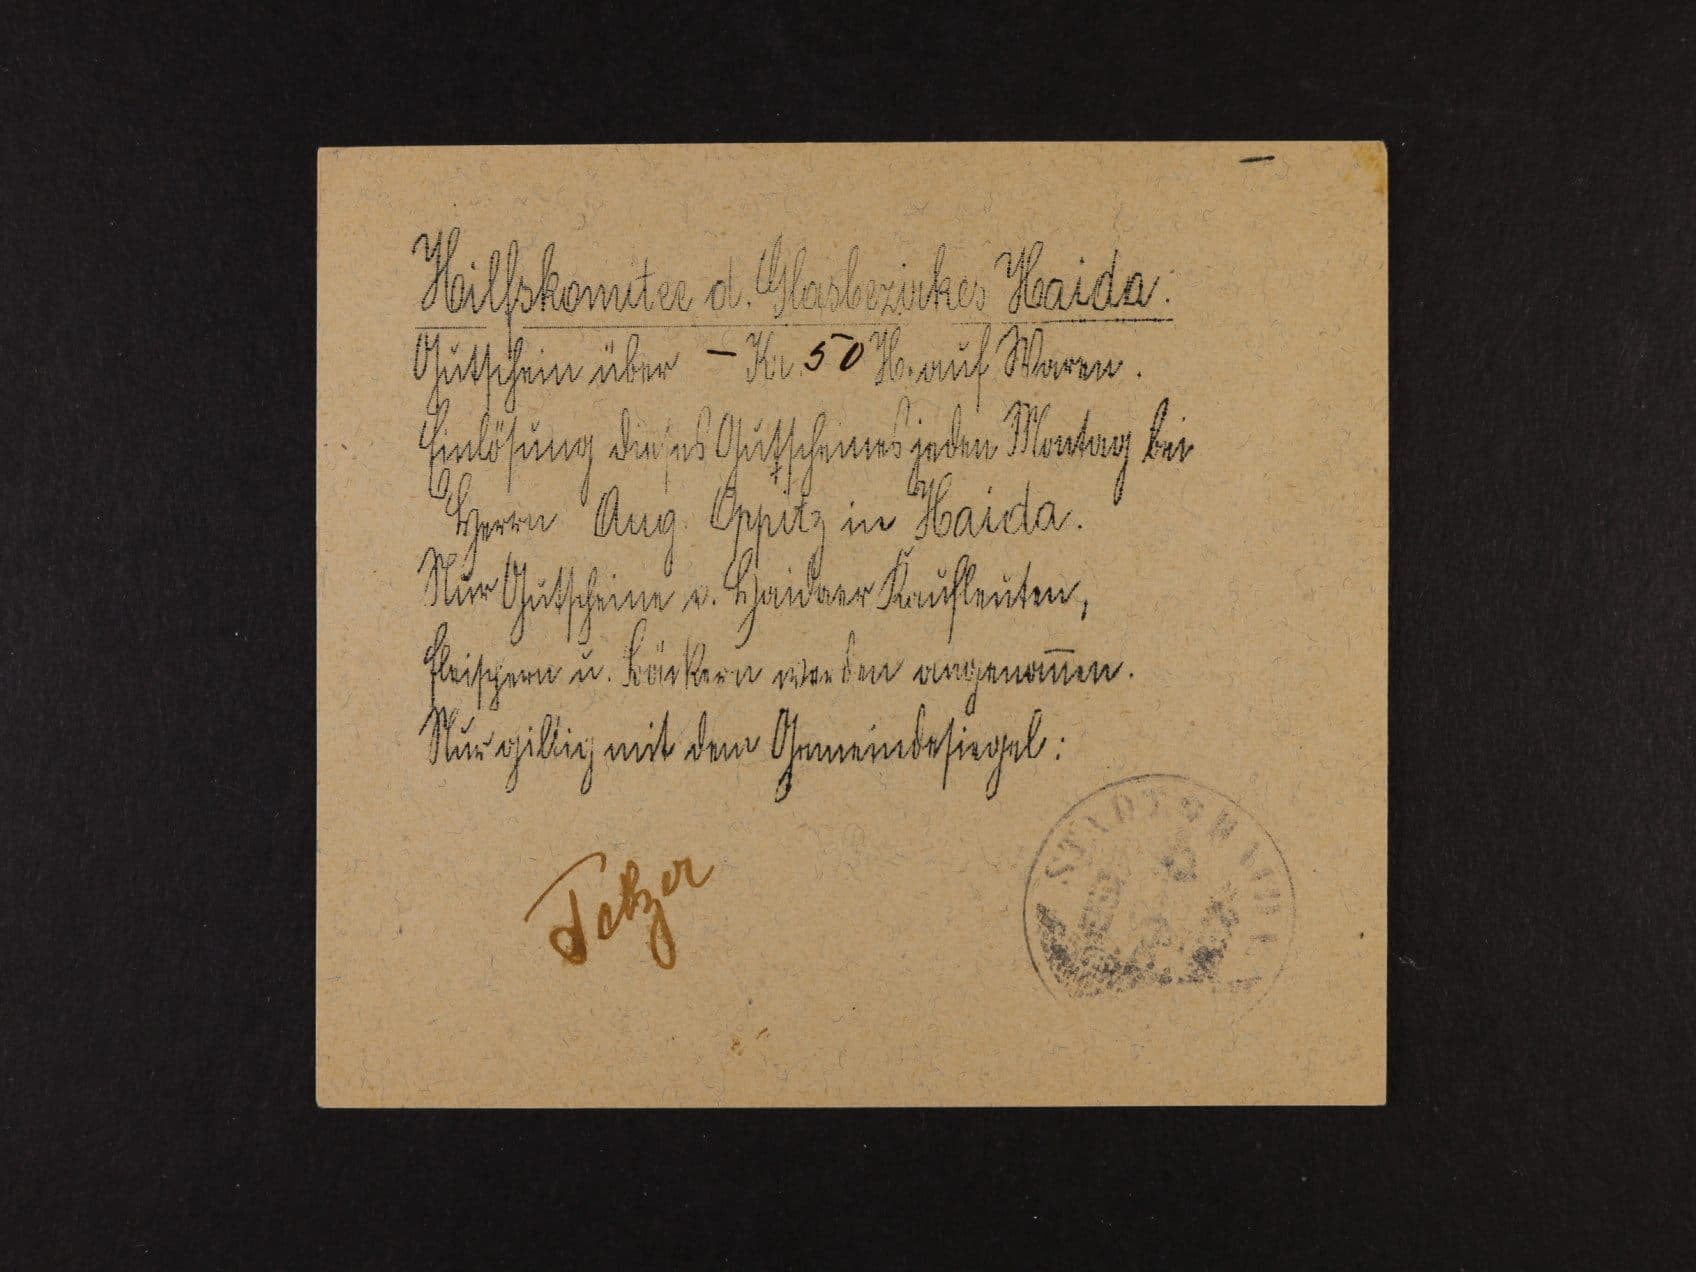 Hilfskomitee d. Glasbezirkes Haida.
Gutschein über – Kr. 50 H. auf Waren.
Einlösung dieses Gutscheines jeden Montag bei
Herrn Aug. Oppitz in Haida.
Nur Gutscheine v. Haidaer Kaufleuten,
Fleischern u. Bäckern werden angenom̄en.
Nur giltig mit dem Gemeindesiegel: